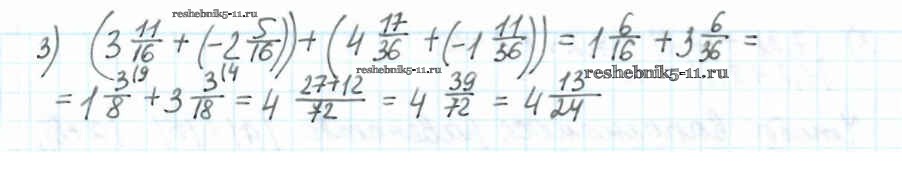 reshebnik5-11.ru
3) (3 11/16 + (-2 5/16)) + (4 17/36 + (-1 11/36)) = 1 6/16 + 3 6/36 =
reshebnik5-11.ru
reshebnik5-11.ru
= 1 3\9/8 + 3 3\4/18 = 4 27+12/72 = 4 39/72 = 4 13/24